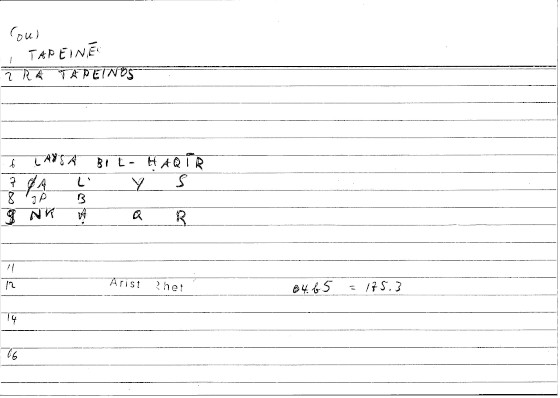 (OU)
1 TAPEINĒ
2 RA TAPEINOS
6 LAYSA BIL-ḤAQĪR
7 ØA L' Y S
8 JP B
9 NK Ḥ Q R
11
12 Arist Rhet 04.b5 = 175.3
14
16